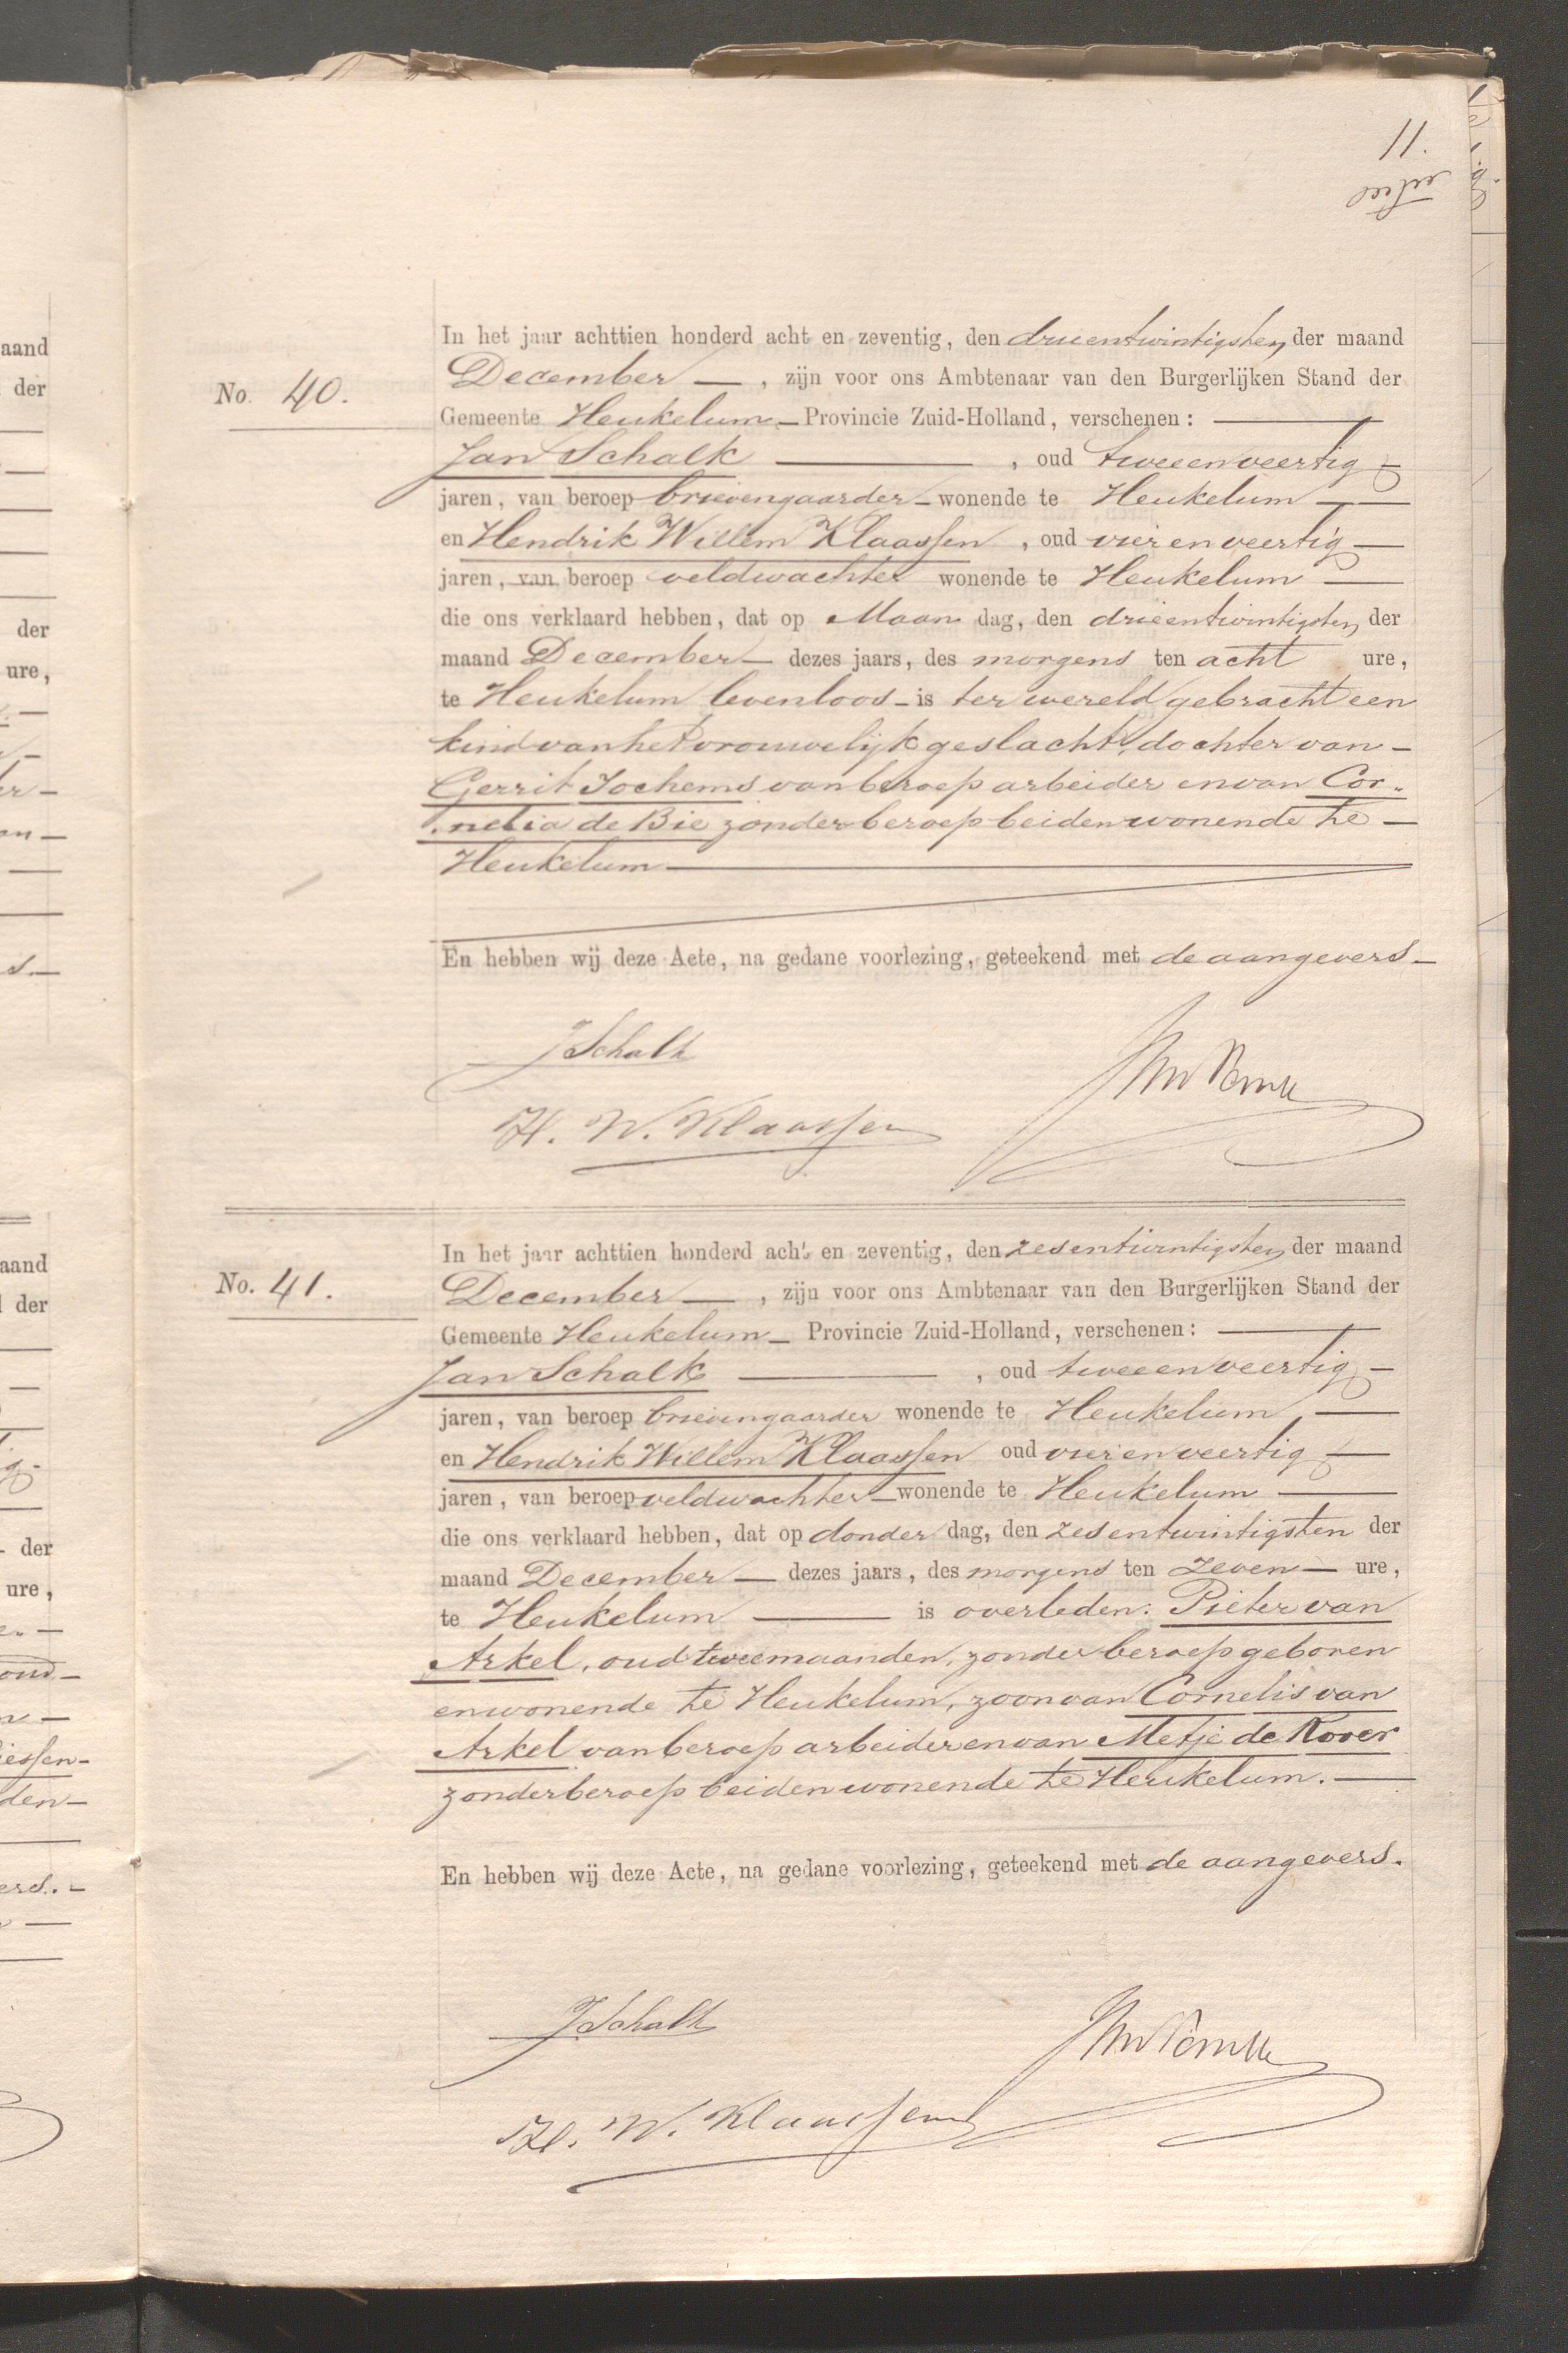 11.
No. 40.
In het jaar achttien honderd acht en zeventig, den drieentwintigsten der maand
December — , zijn voor ons Ambtenaar van den Burgerlijken Stand der
Gemeente Heukelum — Provincie Zuid-Holland, verschenen: —
Jan Schalk — , oud tweeenveertig —
jaren, van beroep brievengaarder — wonende te Heukelum —
en Hendrik Willem Klaassen , oud vierenveertig —
jaren, van beroep veldwachter wonende te Heukelum —
die ons verklaard hebben, dat op Maan dag, den drieentwintigsten der
maand December — dezes jaars, des morgens ten acht ure,
te Heukelum levenloos — is ter wereld gebracht een
kind van het vrouwelijk geslacht, dochter van —
Gerrit Jochems van beroep arbeider en van Cor„
„nelia de Bie zonder beroep beiden wonende te —
Heukelum —
En hebben wij deze Acte, na gedane voorlezing, geteekend met de aangevers —
J Schalk
H. W. Klaassen
No. 41.
In het jaar achttien honderd acht en zeventig, den zesentwintigsten der maand
December — , zijn voor ons Ambtenaar van den Burgerlijken Stand der
Gemeente Heukelum — Provincie Zuid-Holland, verschenen: —
Jan Schalk — , oud tweeenveertig —
jaren, van beroep brievengaarder wonende te Heukelum —
en Hendrik Willem Klaassen oud vierenveertig —
jaren, van beroep veldwachter — wonende te Heukelum —
die ons verklaard hebben, dat op donder dag, den zesentwintigsten der
maand December — dezes jaars, des morgens ten zeven — ure,
te Heukelum — is overleden: Pieter van
Arkel, oud twee maanden, zonder beroep geboren
en wonende te Heukelum, zoon van Cornelis van
Arkel van beroep arbeider en van Metje de Rover
zonder beroep beiden wonende te Heukelum. —
En hebben wij deze Acte, na gedane voorlezing, geteekend met de aangevers.
J Schalk
H. W. Klaassen